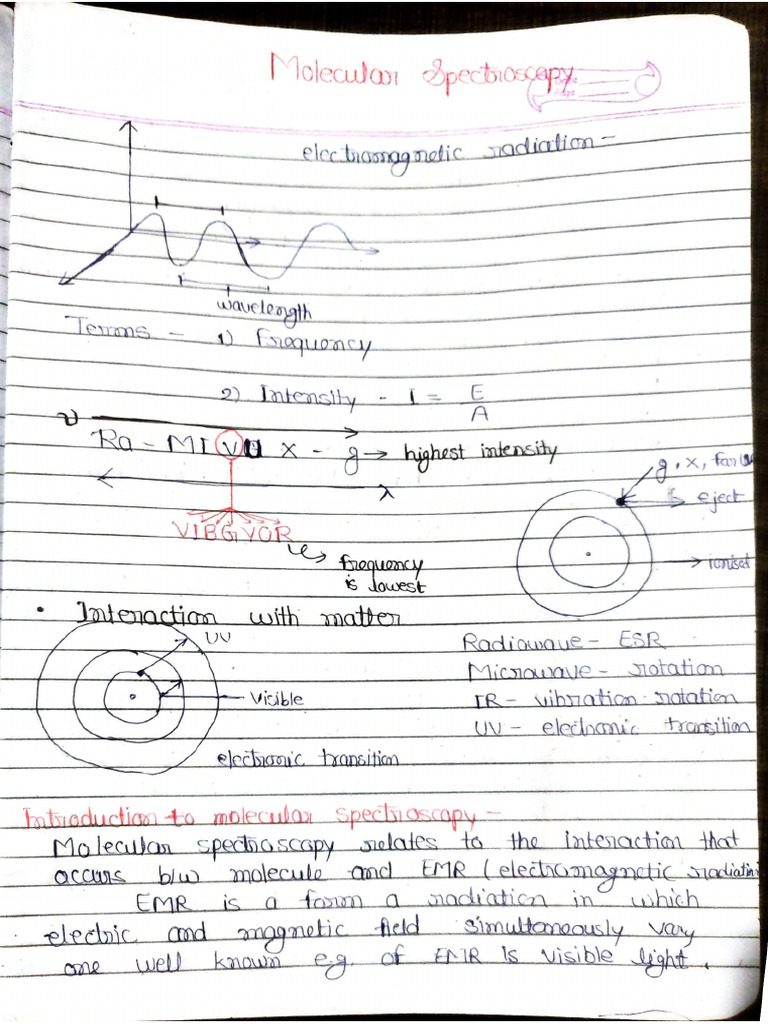 Molecular Spectroscopy
electromagnetic radiation -
wavelength
Terms - 1) Frequency
2) Intensity - I = E/A
ν
Ra - MIVU X - g → highest intensity
λ
VIBGYOR
frequency
is lowest
g, x, far U
eject
ionised
• Interaction with matter
UV
Visible
electronic transition
Radiowave - ESR
Microwave - rotation
IR - vibration rotation
UV - electronic transition
Introduction to molecular spectroscopy -
Molecular spectroscopy relates to the interaction that
occurs b/w molecule and EMR (electromagnetic radiatin
EMR is a form a radiation in which
electric and magnetic field simultaneously vary
one well known e.g. of EMR is visible light.